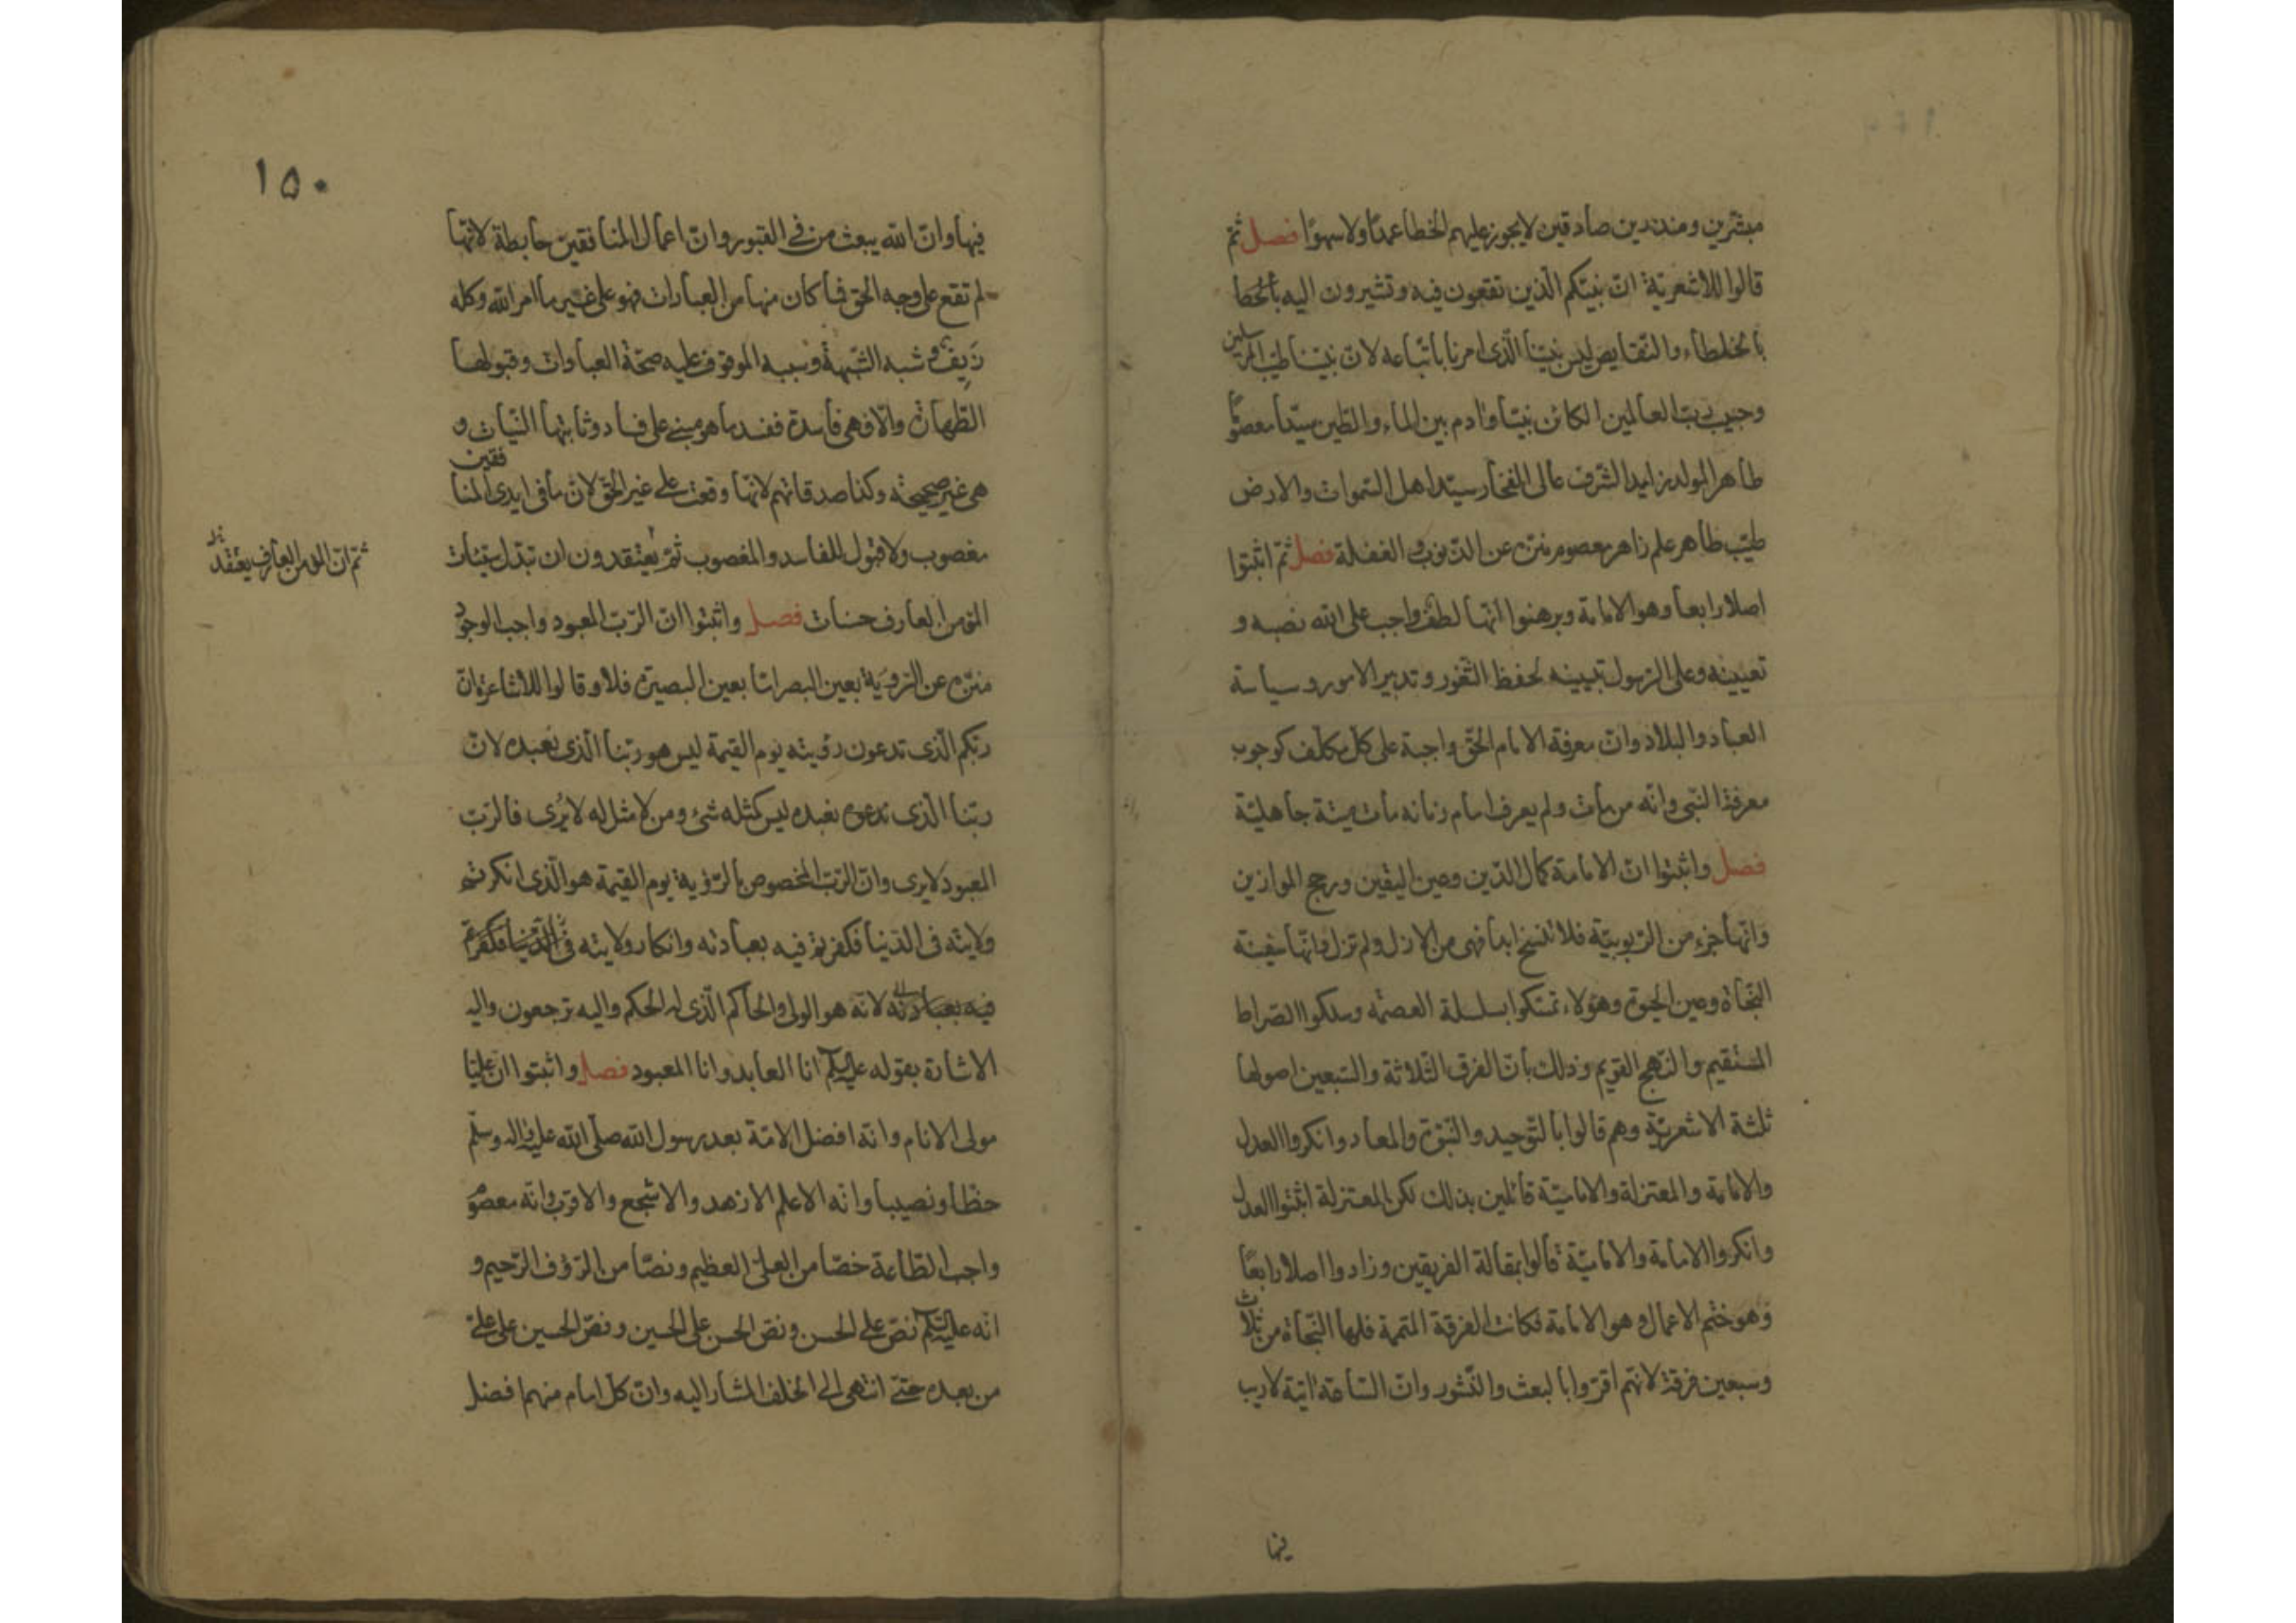 مبشّرين ومنذرين صادقين لايجوز عليهم الخطا عمدًا ولا سهوًا فصل ثمّ
قالوا للاشعريّة انّ نبيّكم الّذين تقعون فيه وتشيرون اليه بالخطا
بالخطاء والنّقايص ليس نبيّنا الّذى امرنا باتّباعه لانّ نبيّنا طيب المرسلين
وحبيب ربّ العالمين الكائن نبيّا وادم بين الماء والطين سيّدا معصومًا
طاهر المولد زايد الشّرف عالى المفخار سيّد اهل السّموات والارض
طيّب طاهر علم زاهر معصوم منزه عن الذنوب و الغفلة فصل ثمّ اثبتوا
اصلا رابعا وهو الامامة وبرهنوا انّها لطف واجب على الله نصبه و
تعيينه وعلى الرّسول تبيينه لحفظ الثّغور وتدبير الامور وسياسة
العباد والبلاد وانّ معرفة الامام الحقّ واجبة على كلّ مكلّف كوجوب
معرفة النّبى وانّه من مات ولم يعرف امام زمانه مات ميتة جاهليّة
فصل واثبتوا انّ الامامة كمال الدّين وعين اليقين ورجح الموازين
وانّها جزء من الرّبوبيّة فلا تنسخ ابدا فهى من الازل ولم تزل وانّها سفينة
النّجاة وعين الحيوة وهؤلاء تمسّكوا بسلسلة العصمه وسلكوا الصّراط
المستقيم والنّهج القويم وذلك بانّ الفرق الثّلاثة والسّبعين اصولها
ثلثة الاشعريّة وهم قالوا بالتّوحيد والنّبوّة والمعاد وانكروا العدل
والامامة والمعتزلة والاماميّة قائلين بذلك لكن المعتزلة اثبتوا العدل
وانكروا الامامة والاماميّة قالوا بمقالة الفريقين وزادوا اصلا رابعًا
وهو ختم الاعمال وهو الامامة فكانت الفرقة المتمة فلها النّجاة من ثلاث
وسبعين فرقة لانّهم اقرّوا بالبعث والنّشور وانّ السّاعة اتية لاريب
فيها
١٥٠
فيها وانّ الله يبعث من فى القبور وانّ اعمال المنافقين حابطة لانّها
لم تقع على وجه الحق فما كان منها من العبادات فهو على غير ما امر الله وكله
زيف و شبه الشّبهة وسببه الموقوف عليه صحّة العبادات وقبولها
الطّهارة والّا فهى فاسدة ففسد ما هو مبنى على فساد وثانيها النّيات و
هى غير صحيحة وكذا صدقاتهم لانّها وقعت على غير الحقّ لانّ ما فى ايدى المنافقين
مغصوب ولا قبول للفاسد والمغصوب ثمّ يعتقدون ان تبدّل سيّئات
ثمّ انّ المؤمن العارف يعتقد
المؤمن العارف حسنات فصل واثبتوا انّ الرّبّ المعبود واجب الوجود
منزه عن الرّوية بعين البصر امّا بعين البصيرة فلا وقالوا للاشاعرة انّ
ربّكم الّذى تدعون رؤيته يوم القيمة ليس هو ربّنا الّذى نعبده لانّ
ربّنا الّذى نعبده ليس كمثله شئ ومن لا مثل له لا يُرى فالرّبّ
المعبود لايرى وانّ الرّبّ المخصوص بالرّؤية يوم القيمة هو الّذى انكرتم
ولايته فى الدّنيا فكفرتم فيه بعبادته وانكار ولايته فى الدّنيا فكفرتم
فيه بعبادته لانّه هو الولى والحاكم الّذى له الحكم واليه ترجعون واليه
الاشارة بقوله عليه السلام انا العابد وانا المعبود فصل واثبتوا انّ عليّا
مولى الانام وانّه افضل الامّة بعد رسول الله صلّى الله عليه واله وسلّم
حظّا ونصيبا وانه الاعلم الازهد والاشجع والاقرب وانّه معصوم
واجب الطّاعة خصّا من العلىّ العظيم ونصّا من الرّؤف الرّحيم و
انّه عليه السلام نصّ على الحسن ونصّ الحسن على الحسين ونصّ الحسين على علىّ
من بعده حتّى انتهى الى الخلف المشار اليه وانّ كلّ امام منهم افضل